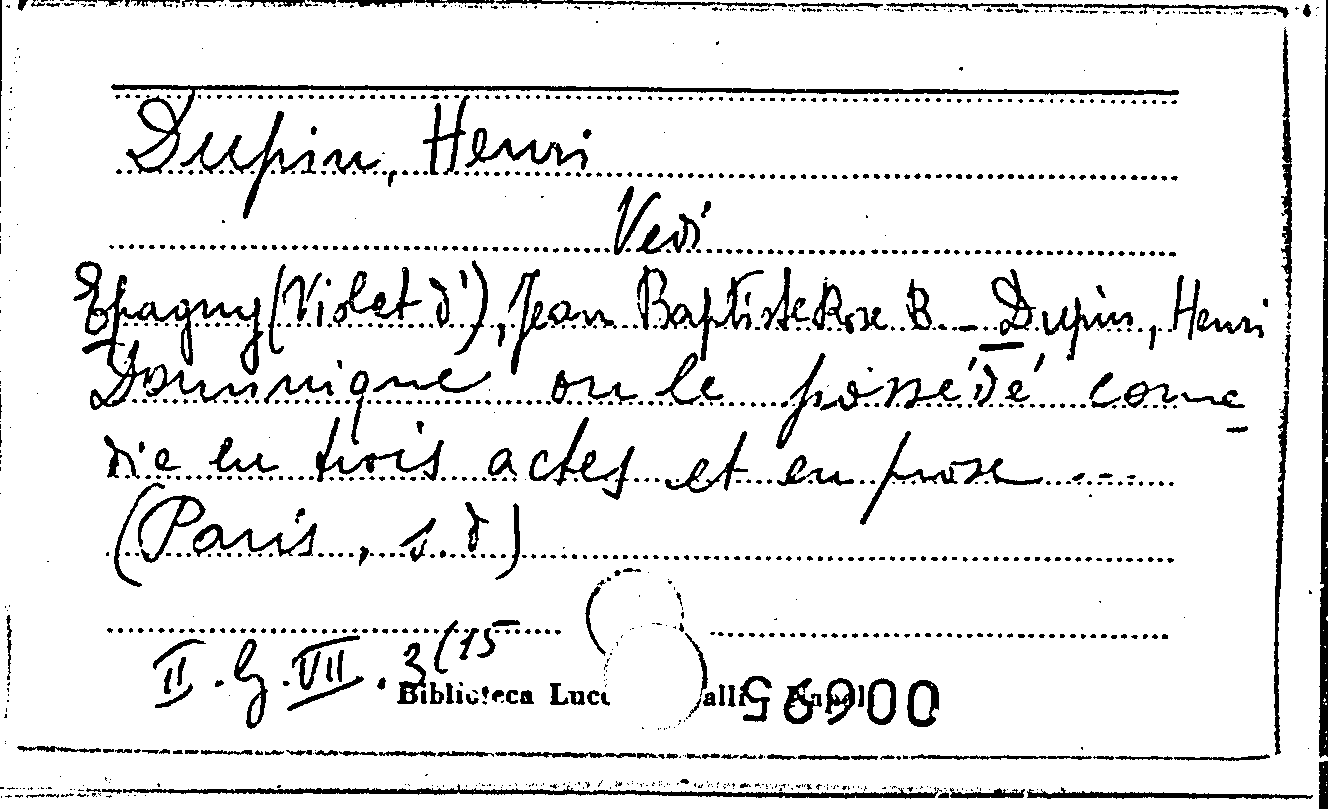 Dupin, Henri
Vedi
Epagny (Violet d'), Jean Baptiste Rose B. - Dupin, Henri
Dominique ou le possédé come
die en trois actes et en prose ...
(Paris, s.d)
II. G. VII. 3(15
Biblioteca Lucc alli - Napoli
00695